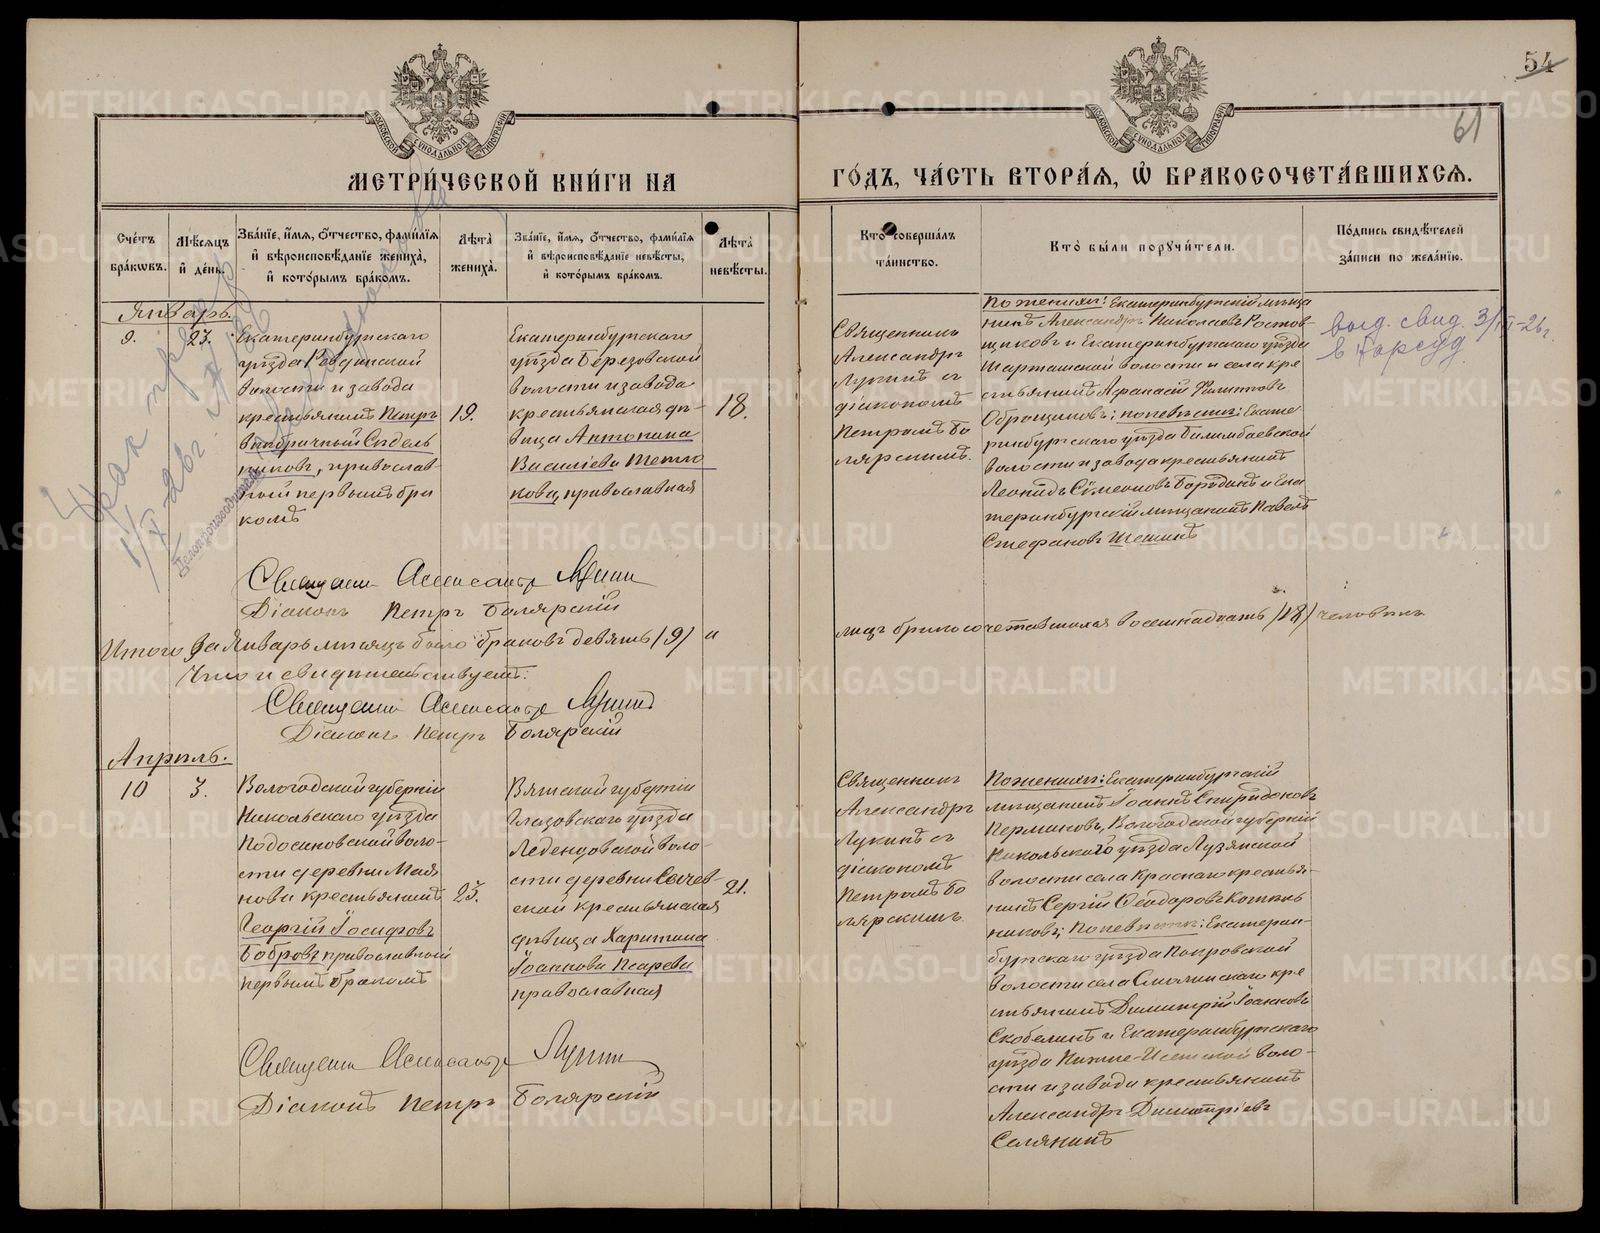 54
61
МОСКОВСКОЙ СѴНОДАЛЬНОЙ ТИПОГРАФІИ
МОСКОВСКОЙ СѴНОДАЛЬНОЙ ТИПОГРАФІИ
МЕТРИ́ЧЕСКОЙ КНИ́ГИ НА
ГО́ДЪ, ЧА́СТЬ ВТОРА́Я, Ѡ БРАКОСОЧЕТА́ВШИХСЯ.
Сче́тъ бра́кѡвъ.
Мѣ́сяцъ и де́нь.
Зва́нїе, и́мя, ѻ́тчество, фами́лїя
и вѣроисповѣ́данїе жениха̀,
и кото́рымъ бра́комъ.
Лѣ́та жениха̀.
Зва́нїе, и́мя, ѻ́тчество, фами́лїя
и вѣроисповѣ́данїе невѣ́сты,
и кото́рымъ бра́комъ.
Лѣ́та невѣ́сты.
Кто̀ соверша́лъ та́инство.
Кто̀ бы́ли порꙋчи́тели.
По́дпись свидѣ́телей за́писи по жела́нїю.
Январь.
9.
23.
Екатеринбургскаго
уѣзда
волости и завода
крестьянинъ Петръ
внѣбрачный Сидель
никовъ, православ-
ный первымъ бра
комъ
19.
Екатеринбургскаго
уѣзда Березовской
волости и завода
крестьянская дѣ-
вица Антонина
Василіева Тетю
кова, православная
18.
Священникъ
Александръ
Лукинъ съ
діакономъ
Петромъ Бо
лярскимъ.
По женихѣ: Екатеринбургскій мѣща
нинъ Александръ Николаевъ Ростов
щиковъ и Екатеринбургскаго уѣзда
Шарташской волости и села кре
стьянинъ Афанасій Филитовъ
Оброщиковъ; по невѣстѣ: Екате
ринбургскаго уѣзда Билимбаевской
волости и завода крестьянинъ
Леонидъ Симеоновъ Бородинъ и Ека
теринбургскій мѣщанинъ Павелъ
Стефановъ Шешинъ
выд. свид. 3/IX-26г.
в Горсуд
Брак
Делопроизводитель
Священникъ Александръ Лукинъ
Діаконъ Петръ Болярскій
Итого за Январь мѣсяцъ было браковъ девять /9/ и
лицъ бракосочетавшихся восемнадцать /18/ человѣкъ
Что и свидѣтельствуемъ:
Священникъ Александръ Лукинъ
Діаконъ Петръ Болярскій
Апрѣль.
10
3.
Вологодской губерніи
Никольскаго уѣзда
Подосиновской воло-
сти деревни Мая
нова крестьянинъ
Георгій Іосифовъ
Бобровъ православный
первымъ бракомъ
23.
Вятской губерніи
Глазовскаго уѣзда
Леденцовской воло-
сти деревни Сычев-
ской крестьянская
дѣвица Харитина
Іоаннова Псарева
православная
21.
Священникъ
Александръ
Лукинъ съ
діакономъ
Петромъ Бо
лярскимъ
По женихѣ: Екатеринбургскій
мѣщанинъ Іоаннъ Спиридоновъ
Пермяковъ, Вологодской губерніи
Никольскаго уѣзда Лузянской
волости села Краснаго крестья-
нинъ Сергій Ѳеодоровъ Котель
никовъ; По невѣстѣ: Екатерин-
бургскаго уѣзда Покровской
волости села Смолинскаго кре
стьянинъ Димитрій Іоанновъ
Скобелинъ и Екатеринбургскаго
уѣзда Нижне-Исетской воло-
сти и завода крестьянинъ
Александръ Димитріевъ
Селянинъ
Священникъ Александръ Лукинъ
Діаконъ Петръ Болярскій
METRIKI.GASO-URAL.RU